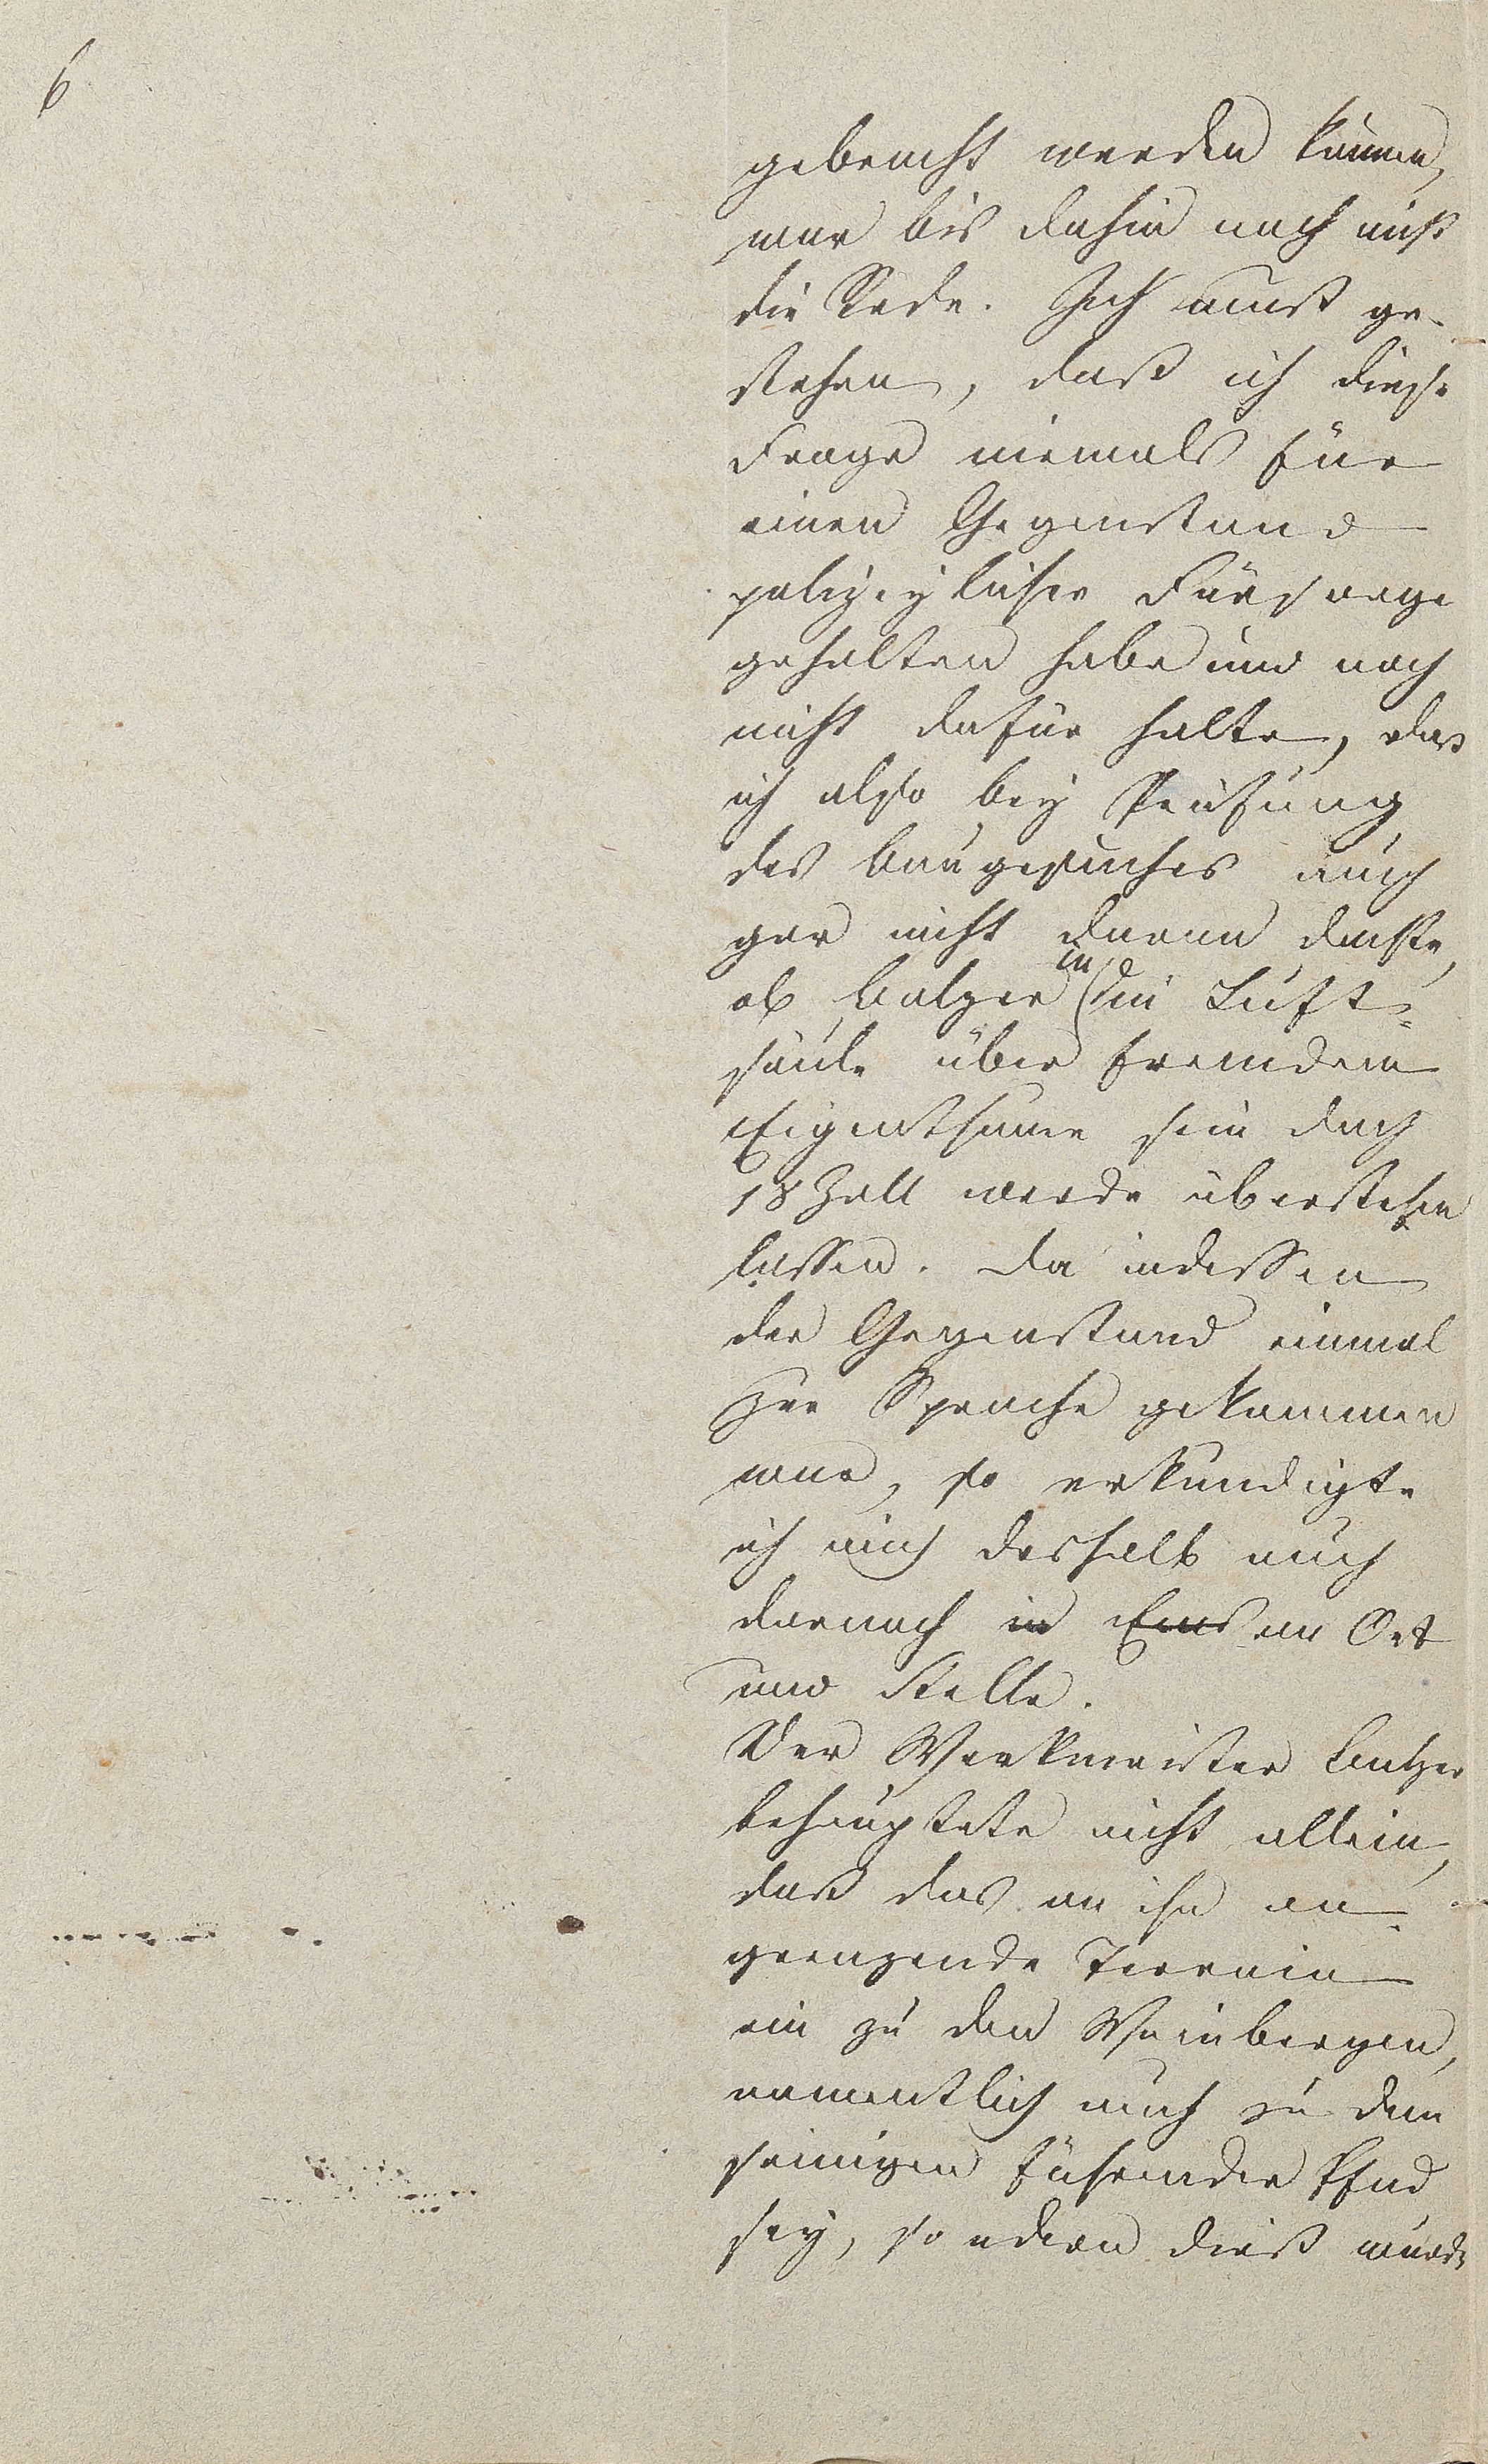 6
gebracht werden könne,
war bis dahin noch nicht
die Rede. Ich muß ge-
stehen, daß ich diese
Frage niemals für
einen Gegenstand
polizeylicher Fürsorge
gehalten habe und noch
nicht dafür halte, daß
ich also bey Prüfung
des Baugesuches auch
gar nicht daran dachte,
ob Balzer in die Luft-
säule über fremdem
Eigenthume sein Dach
18 Zoll werde überstehen
lassen. Da indessen
der Gegenstand einmal
zur Sprache gekommen
war, so erkundigte
ich mich deshalb auch
darnach in Ems an Ort
und Stelle.
Der Werkmeister Balzer
behauptete nicht allein,
daß das an ihn an-
grenzende Terrain
ein zu den Weinbergen,
namentlich auch zu dem
seinigen führender Pfad
sey, sondern dieß wurde